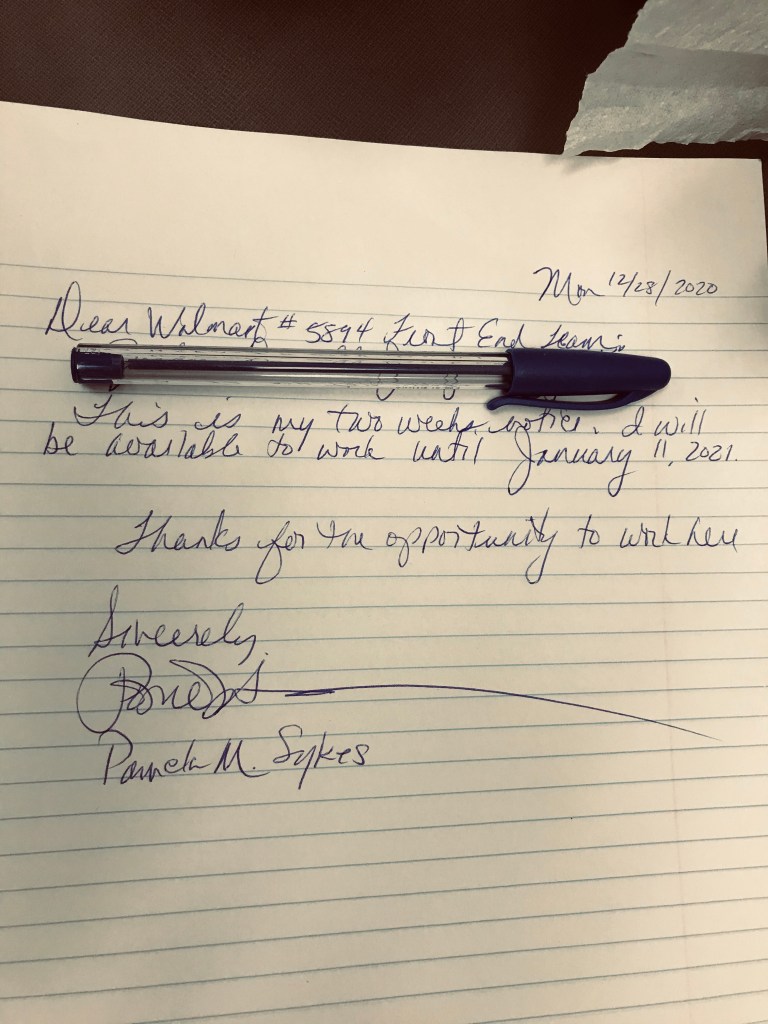 Mon 12/28/2020
Dear Walmart # 5894 Front End Team:
This is my two weeks notice. I will
be available to work until January 11, 2021.
Thanks for the opportunity to work here
Sincerely,
Pamela M. Sykes